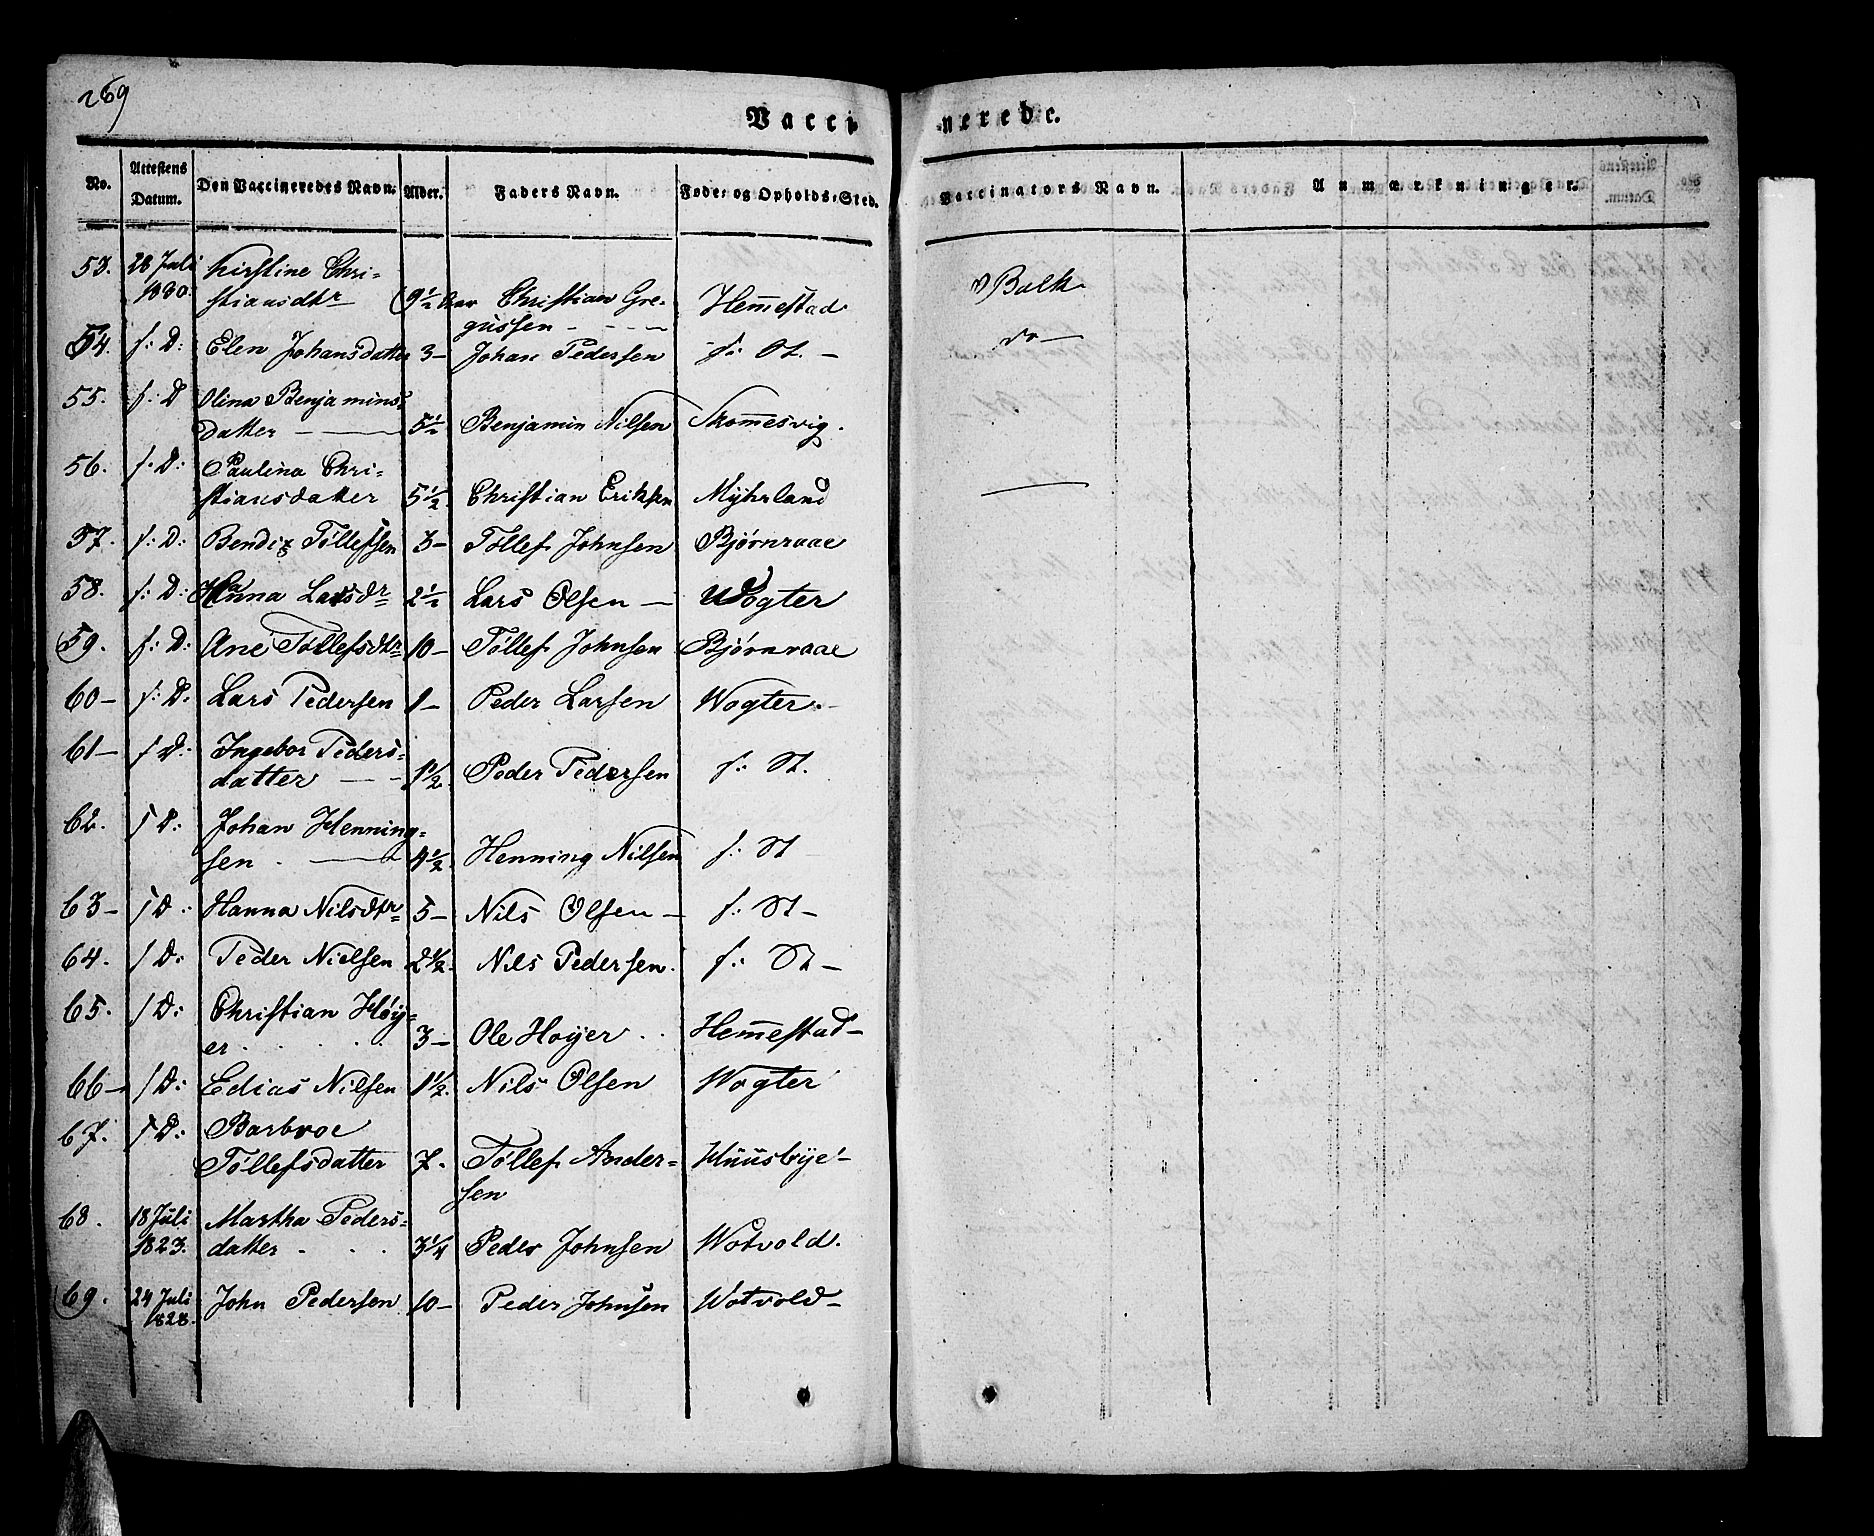 269
Vaccinerede.
No. Attestens Datum. Den Vaccineredes Navn. Alder. Faders Navn. Føde- og Opholds-Sted. Vaccinators Navn. Anmærkninger.
53. 28 Juli Kirstine Chri-
1830. stiansdtr 9½ Aar Christian Gre- Hem̅estad Balk
gussen
54. s: D: Elen Johansdatter 3- Johan Pedersen s: St. - do
55. s: D Olina Benjamins-
datter 5½ Benjamin Nilsen Skom̅esvig.
56. s. D: Paulina Chri-
stiansdatter 5½. Christian Eriksen Myhrland
57. s: D: Bendix Tøllefsen 3- Tøllef Johnsen Bjørnraae
58. s: D: Hanna Larsdr 2½ Lars Olsen - Wogter
59. s: D: Ane Tøllefsdtr 10- Tøllef Johnsen Bjørnraae
60- s: D. Lars Pedersen 1- Peder Larsen Wogter.
61- s D: Ingebor Peders-
datter 1½. Peder Pedersen s: St.
62. s D: Johan Henning-
sen 4½. Henning Nilsen s: St
63- s D: Hanna Nilsdtr 5- Nils Olsen - s: St-
64. s D: Peder Nielsen 2½. Nils Pedersen. s: St-
65. s D: Christian Høÿ-
er 3- Ole Hoÿer Hem̅estad-
66- s D: Edias Nilsen 1½. Nils Olsen Wogter
67. s D: Barbroe
Tøllefsdatter 7. Tøllef Ander- Huusbÿe-
sen
68. 18 Juli Martha Peders-
1823. datter 3¼ Peder Johnsen Wotvold.
69. 24 Juli John Pedersen 10- Peder Johnsen Wotvold-
1828.